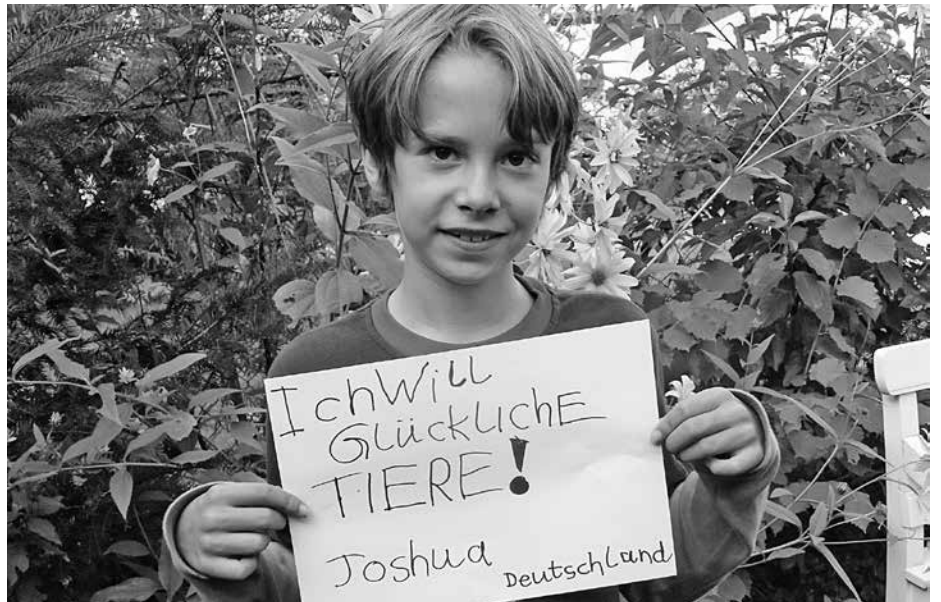 Ich Will
GLÜCKLICHE
TIERE!
Joshua
Deutschland